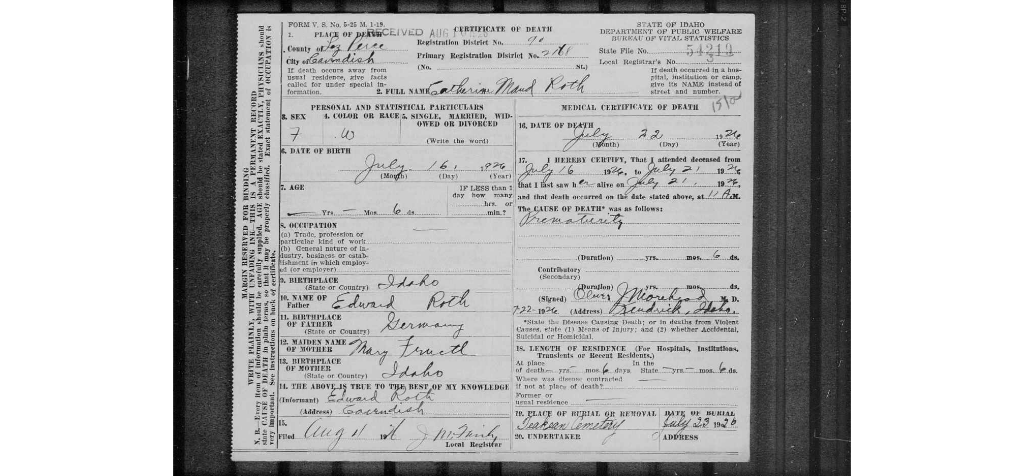 FORM V. S. No. 5-25 M. 1-19.
CERTIFICATE OF DEATH
STATE OF IDAHO
DEPARTMENT OF PUBLIC WELFARE
BUREAU OF VITAL STATISTICS
RECEIVED AUG
1. PLACE OF DEATH
County of Nez Perce
City of Cavendish
If death occurs away from
usual residence, give facts
called for under special in-
formation.
Registration District No.
Primary Registration District No.
(No. St.)
State File No. 54219
Local Registrar's No. 3
If death occurred in a hos-
pital, institution or camp,
give its NAME instead of
street and number.
2. FULL NAME Catherine Maud Roth
PERSONAL AND STATISTICAL PARTICULARS
3. SEX 4. COLOR OR RACE 5. SINGLE, MARRIED, WID-
OWED OR DIVORCED
F W
(Write the word)
6. DATE OF BIRTH
July 16, 1926
(Month) (Day) (Year)
7. AGE IF LESS than 1
day how many
hrs. or
— Yrs. — Mos. 6 ds. min.?
8. OCCUPATION
(a) Trade, profession or
particular kind of work
(b) General nature of in-
dustry, business or estab-
lishment in which employ-
ed (or employer)
9. BIRTHPLACE
(State or Country) Idaho
10. NAME OF
Father Edward Roth
11. BIRTHPLACE
OF FATHER
(State or Country) Germany
12. MAIDEN NAME
OF MOTHER Mary
13. BIRTHPLACE
OF MOTHER
(State or Country) Idaho
14. THE ABOVE IS TRUE TO THE BEST OF MY KNOWLEDGE
(Informant) Edward Roth
(Address) Cavendish
15.
Filed Aug
Local Registrar
MEDICAL CERTIFICATE OF DEATH
16. DATE OF DEATH
July 22 1926
(Month) (Day) (Year)
17. I HEREBY CERTIFY, That I attended deceased from
July 16 1926, to July 21 1926
that I last saw her alive on July 21 1926,
and that death occurred on the date stated above, at 11 A.M.
The CAUSE OF DEATH* was as follows:
Prematurity
(Duration) yrs. mos. 6 ds.
Contributory
(Secondary)
(Duration) yrs. mos. ds.
(Signed) J Morehead M. D.
7-22-1926 (Address) Kendrick, Idaho.
*State the Disease Causing Death; or in deaths from Violent
Causes, state (1) Means of Injury; and (2) whether Accidental,
Suicidal or Homicidal.
18. LENGTH OF RESIDENCE (For Hospitals, Institutions,
Transients or Recent Residents.)
At place In the
of death — yrs. — mos. 6 days State — yrs — mos. 6 ds.
Where was disease contracted
if not at place of death?
Former or
usual residence
19. PLACE OF BURIAL OR REMOVAL DATE OF BURIAL
Teakean Cemetery July 23 1926
20. UNDERTAKER ADDRESS
MARGIN RESERVED FOR BINDING
WRITE PLAINLY, WITH UNFADING INK—THIS IS A PERMANENT RECORD
N. B.—Every item of information should be carefully supplied. AGE should be stated EXACTLY, PHYSICIANS should
state CAUSE OF DEATH in plain terms, so that it may be properly classified. Exact statement of OCCUPATION is
very important. See instructions on back of certificate.